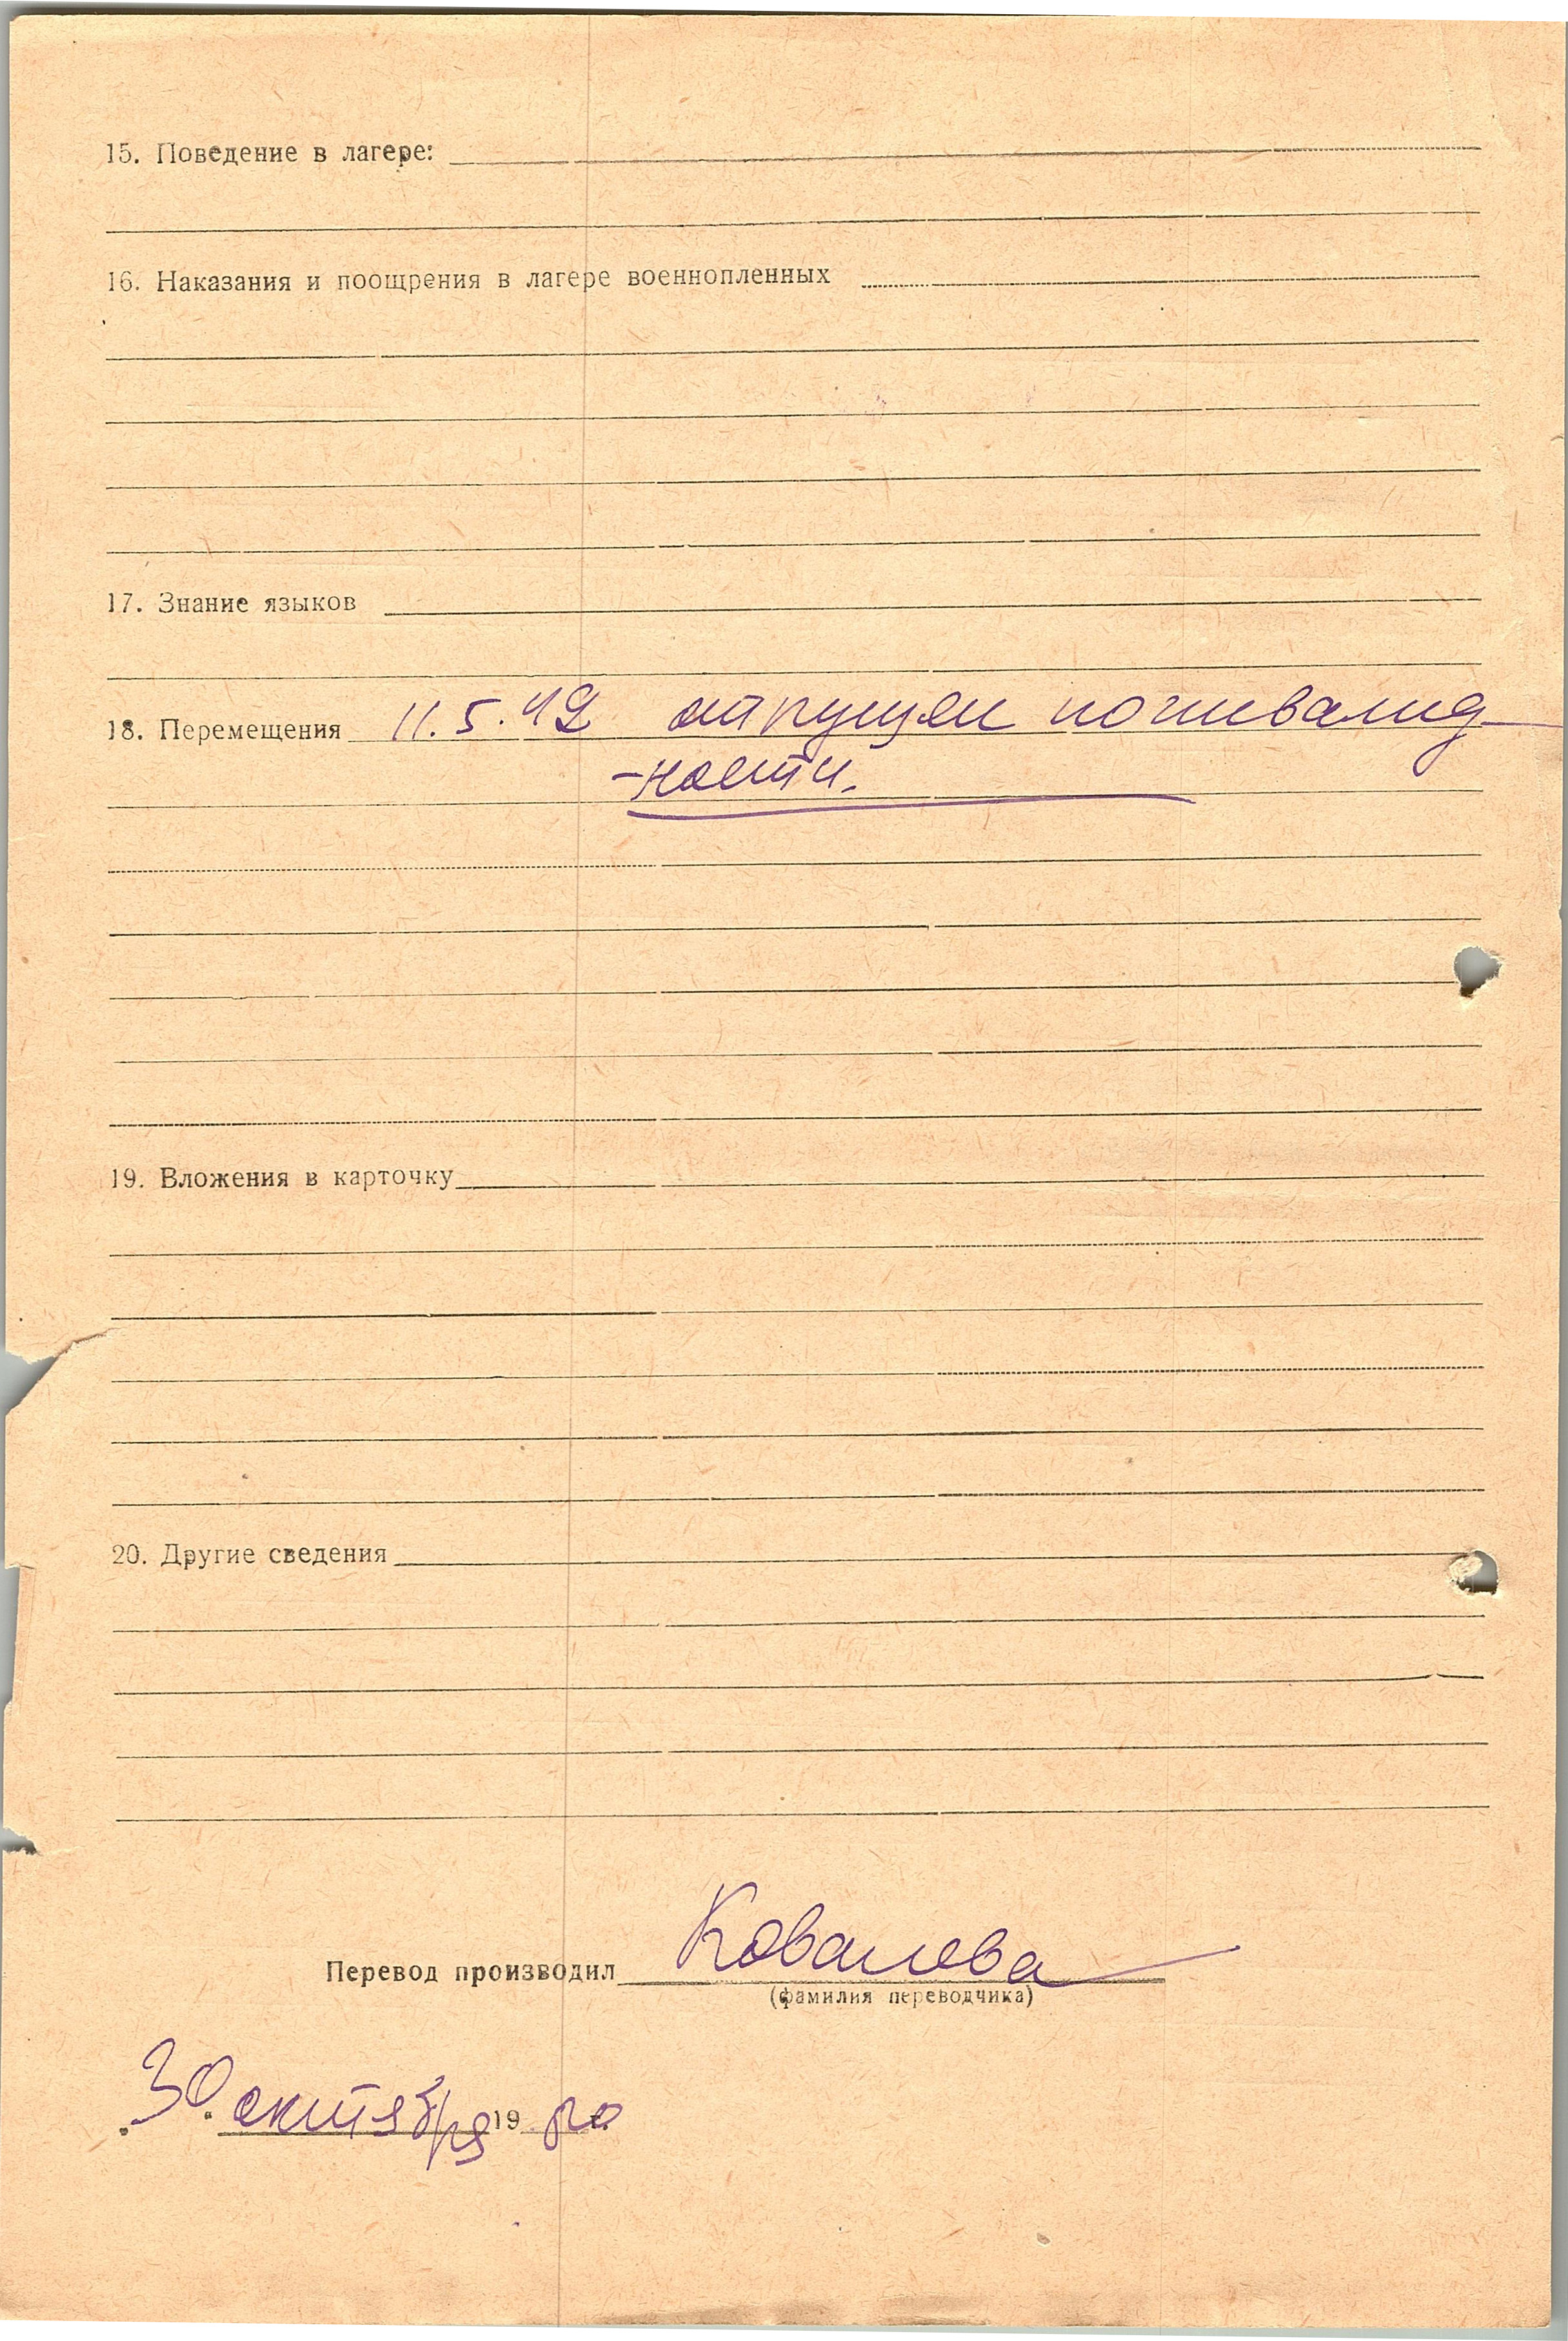 15. Поведение в лагере:
16. Наказания и поощрения в лагере военнопленных
17. Знание языков
18. Перемещения 11.5.42 отпущен по инвалид-
-ности.
19. Вложения в карточку
20. Другие сведения
Перевод производил Ковалева
(фамилия переводчика)
30 октября 19